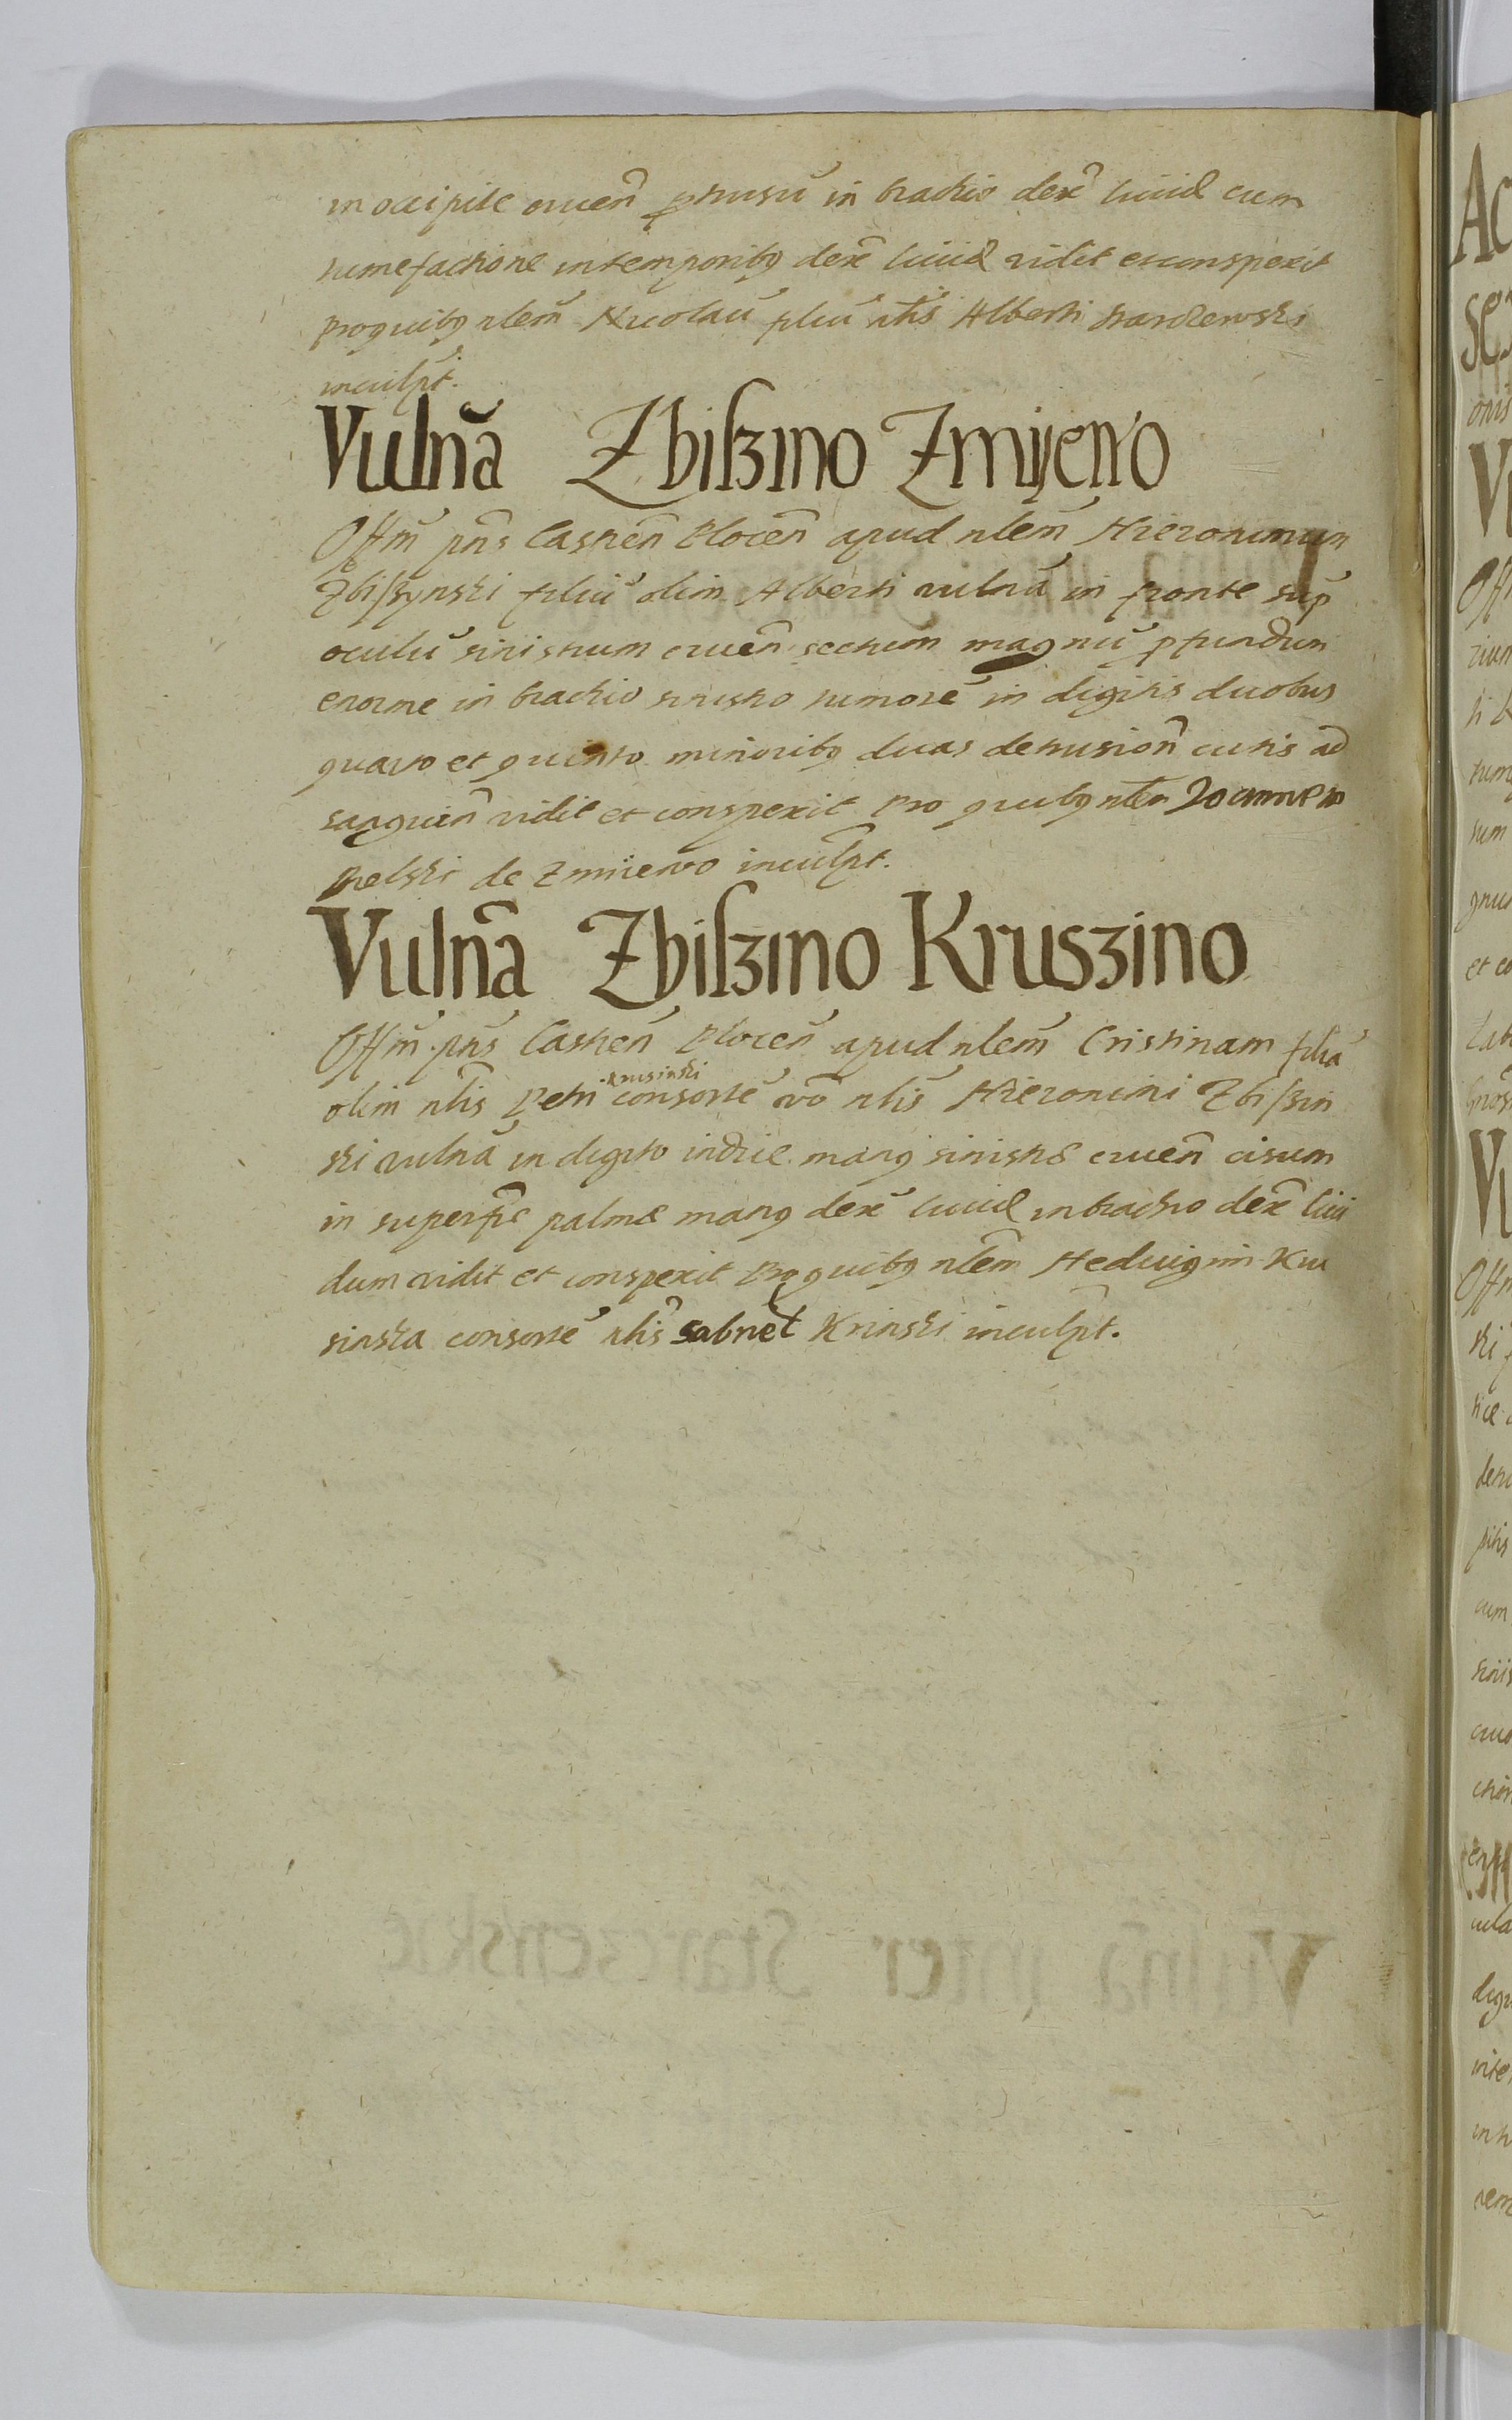 in occipite cruen̄ ꝑtusū in brachio dex̄ liuid cum
tumefactione in temporibꝫ dex̄ liuid vidit et conspexit
pro quibꝫ nlem̄ Nicolaū filiū nlis̄ Alberti
inculpt̄.
Vulnā Zbiszino Zmijewo
Offm̄ pn̄s Castren̄ Plocen̄ apud nlem̄ Hieronimum
Zbiſzynski filiū olim Alberti vulnā in fronte sup̄
oculū sinistrum cruen̄ sectum magnū ꝓfundum
enorme in brachio sinistro tumorē in digitis duobus
quarto et quinto minoribꝫ duas detrusion̄ cutis ad
sanguin̄ vidit et conspexit Pro quibꝫ nlem̄ Joannem
Pielski de Zmiiewo inculpt̄.
Vulnā Zbiszino Kruszino
Offm̄ pn̄s Castren̄ Plocen̄ apud nlem̄ Cristinam filiā
Krusinski
olim nlis̄ Petri consortē vō nlis̄ Hieronimi Zbiſzin
ski vulnā in digito indice manꝫ sinistræ cruen̄ cisum
in superfic̄ palmæ manꝫ dex̄ liuid in brachio dex̄ liui
dum vidit et conspexit Pro quibꝫ nlem̄ Heduigim Kru
sinska consortē nlis̄ Krinski inculpt̄.